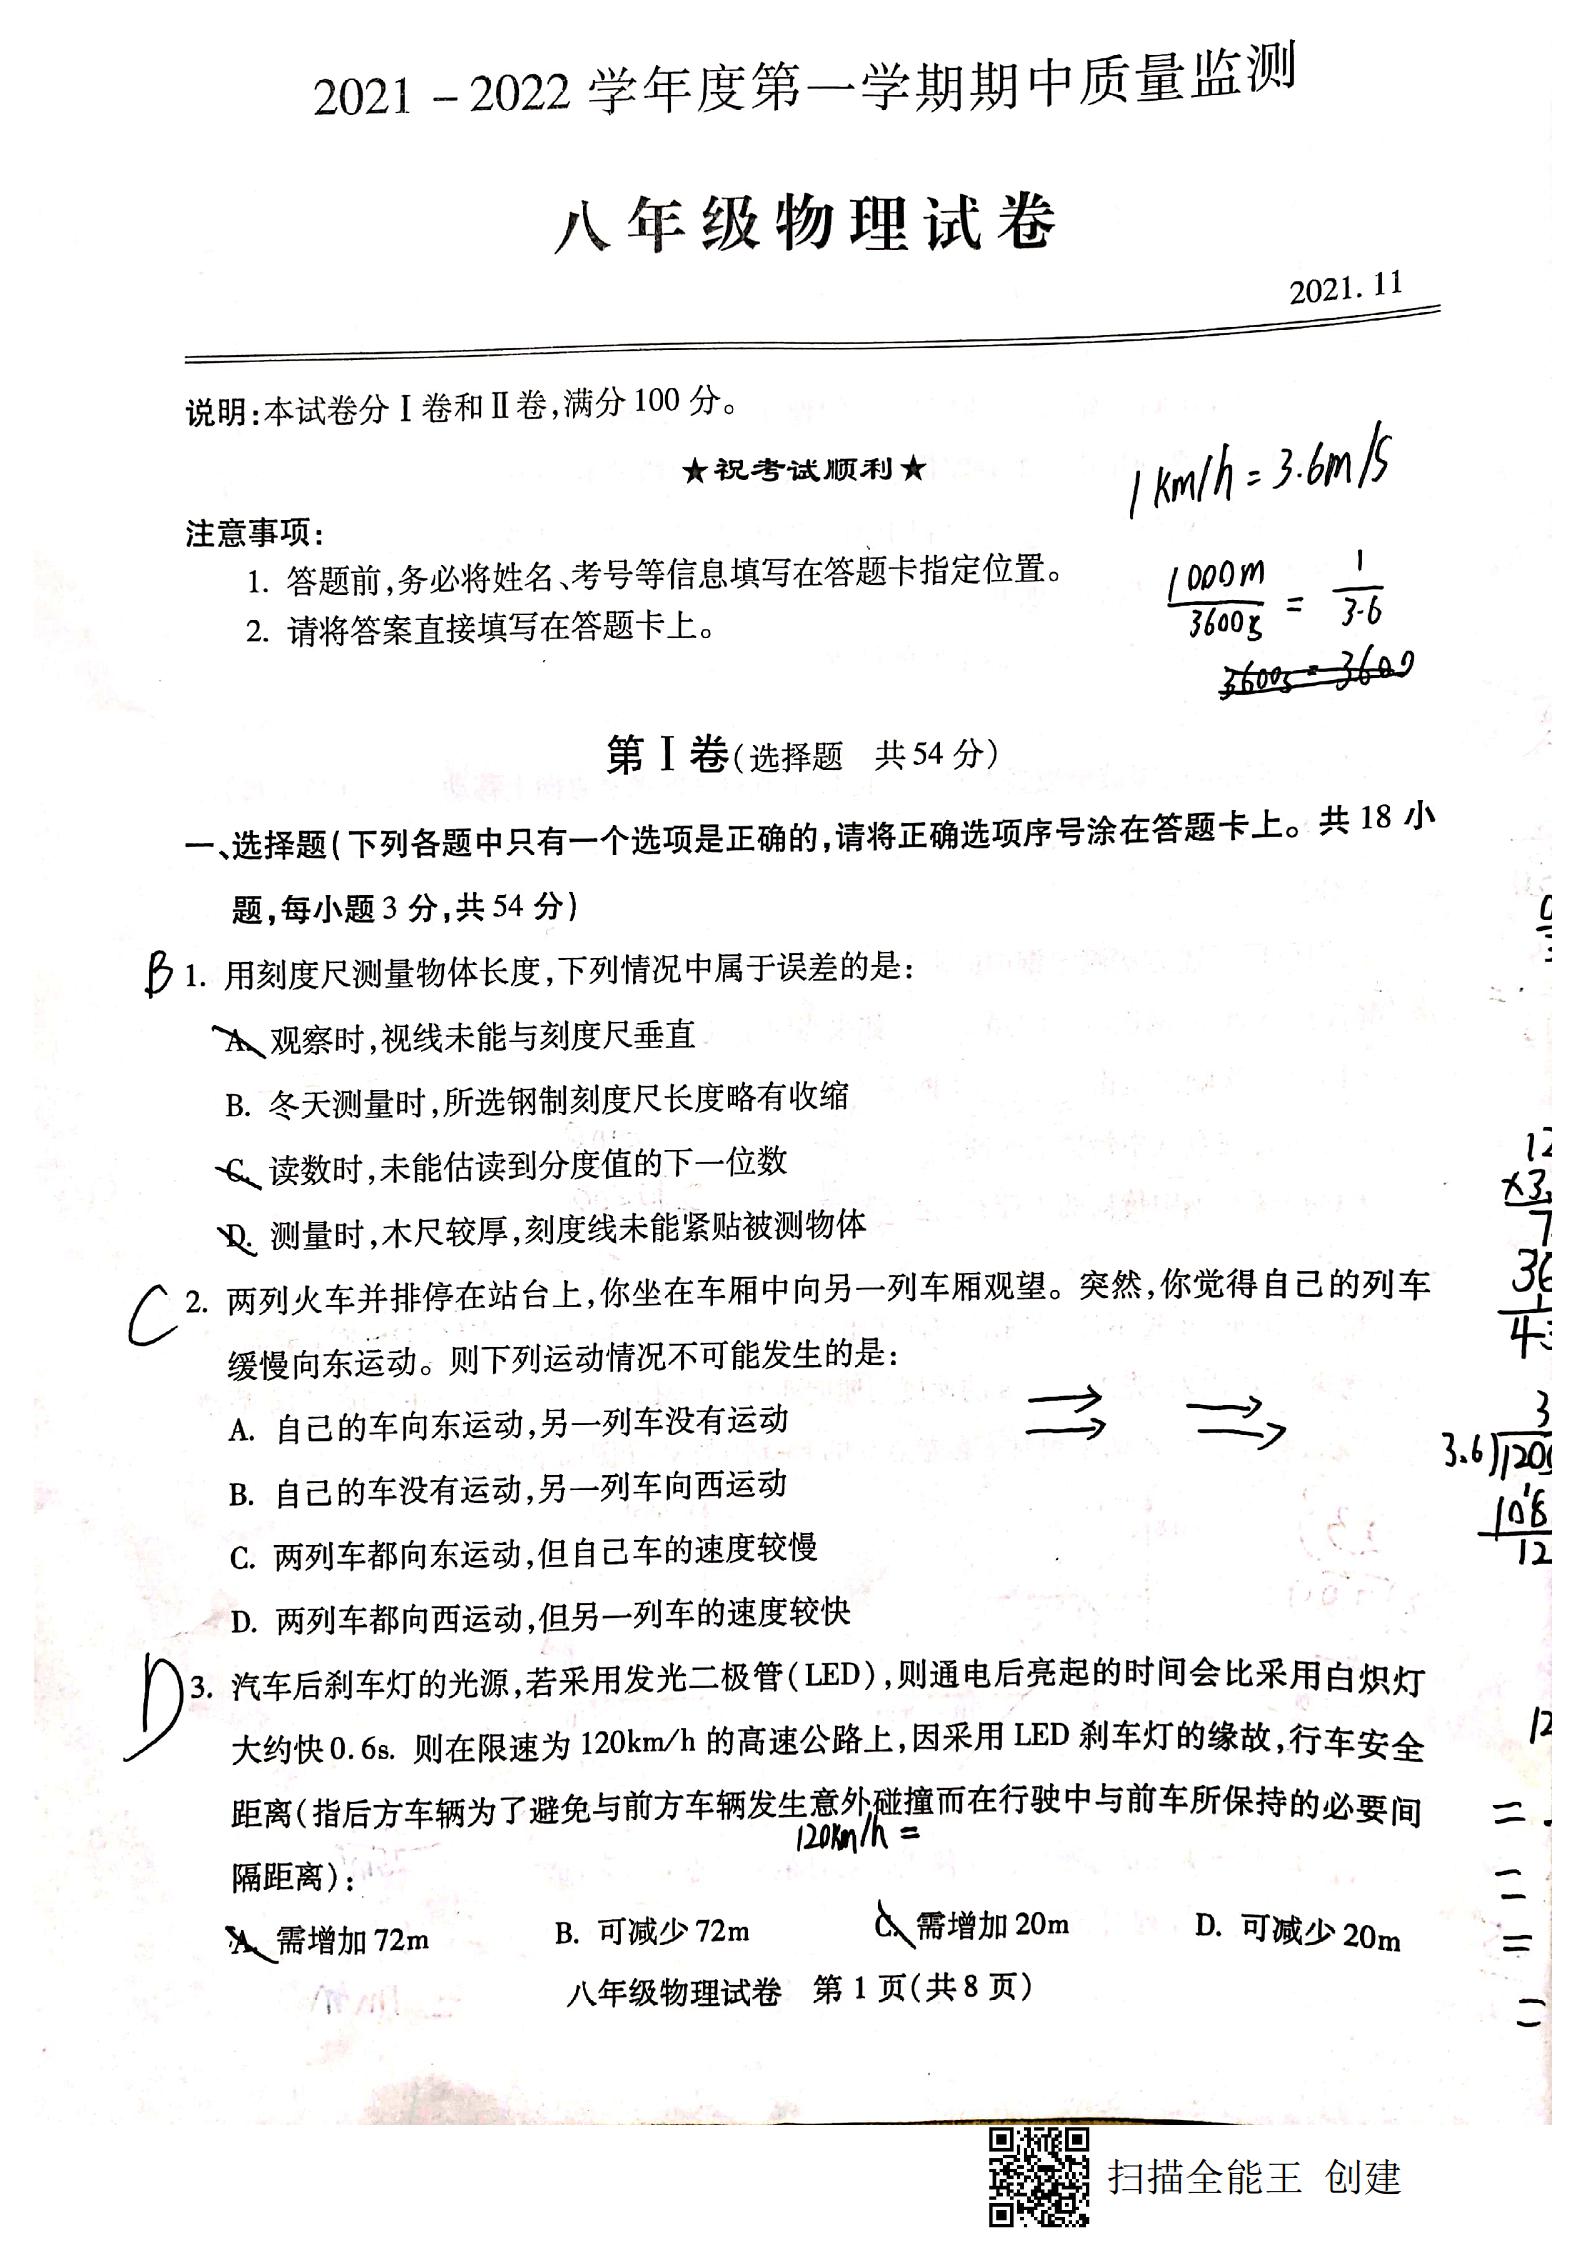 2021-2022学年度第一学期期中质量监测
八年级物理试卷
2021.11
说明:本试卷分Ⅰ卷和Ⅱ卷,满分100分。
★祝考试顺利★
1km/h=3.6m/s
注意事项:
1. 答题前,务必将姓名、考号等信息填写在答题卡指定位置。
1000m/3600s = 1/3.6
2. 请将答案直接填写在答题卡上。
3600s=3600
第Ⅰ卷(选择题 共54分)
一、选择题(下列各题中只有一个选项是正确的,请将正确选项序号涂在答题卡上。共18小
题,每小题3分,共54分)
B 1. 用刻度尺测量物体长度,下列情况中属于误差的是:
A. 观察时,视线未能与刻度尺垂直
B. 冬天测量时,所选钢制刻度尺长度略有收缩
C. 读数时,未能估读到分度值的下一位数
D. 测量时,木尺较厚,刻度线未能紧贴被测物体
C 2. 两列火车并排停在站台上,你坐在车厢中向另一列车厢观望。突然,你觉得自己的列车
缓慢向东运动。则下列运动情况不可能发生的是:
A. 自己的车向东运动,另一列车没有运动
B. 自己的车没有运动,另一列车向西运动
3.6
C. 两列车都向东运动,但自己车的速度较慢
108
12
D. 两列车都向西运动,但另一列车的速度较快
D 3. 汽车后刹车灯的光源,若采用发光二极管(LED),则通电后亮起的时间会比采用白炽灯
大约快0.6s. 则在限速为120km/h的高速公路上,因采用LED刹车灯的缘故,行车安全
距离(指后方车辆为了避免与前方车辆发生意外碰撞而在行驶中与前车所保持的必要间
120km/h=
隔距离):
A. 需增加72m B. 可减少72m C. 需增加20m D. 可减少20m
八年级物理试卷 第1页(共8页)
扫描全能王 创建